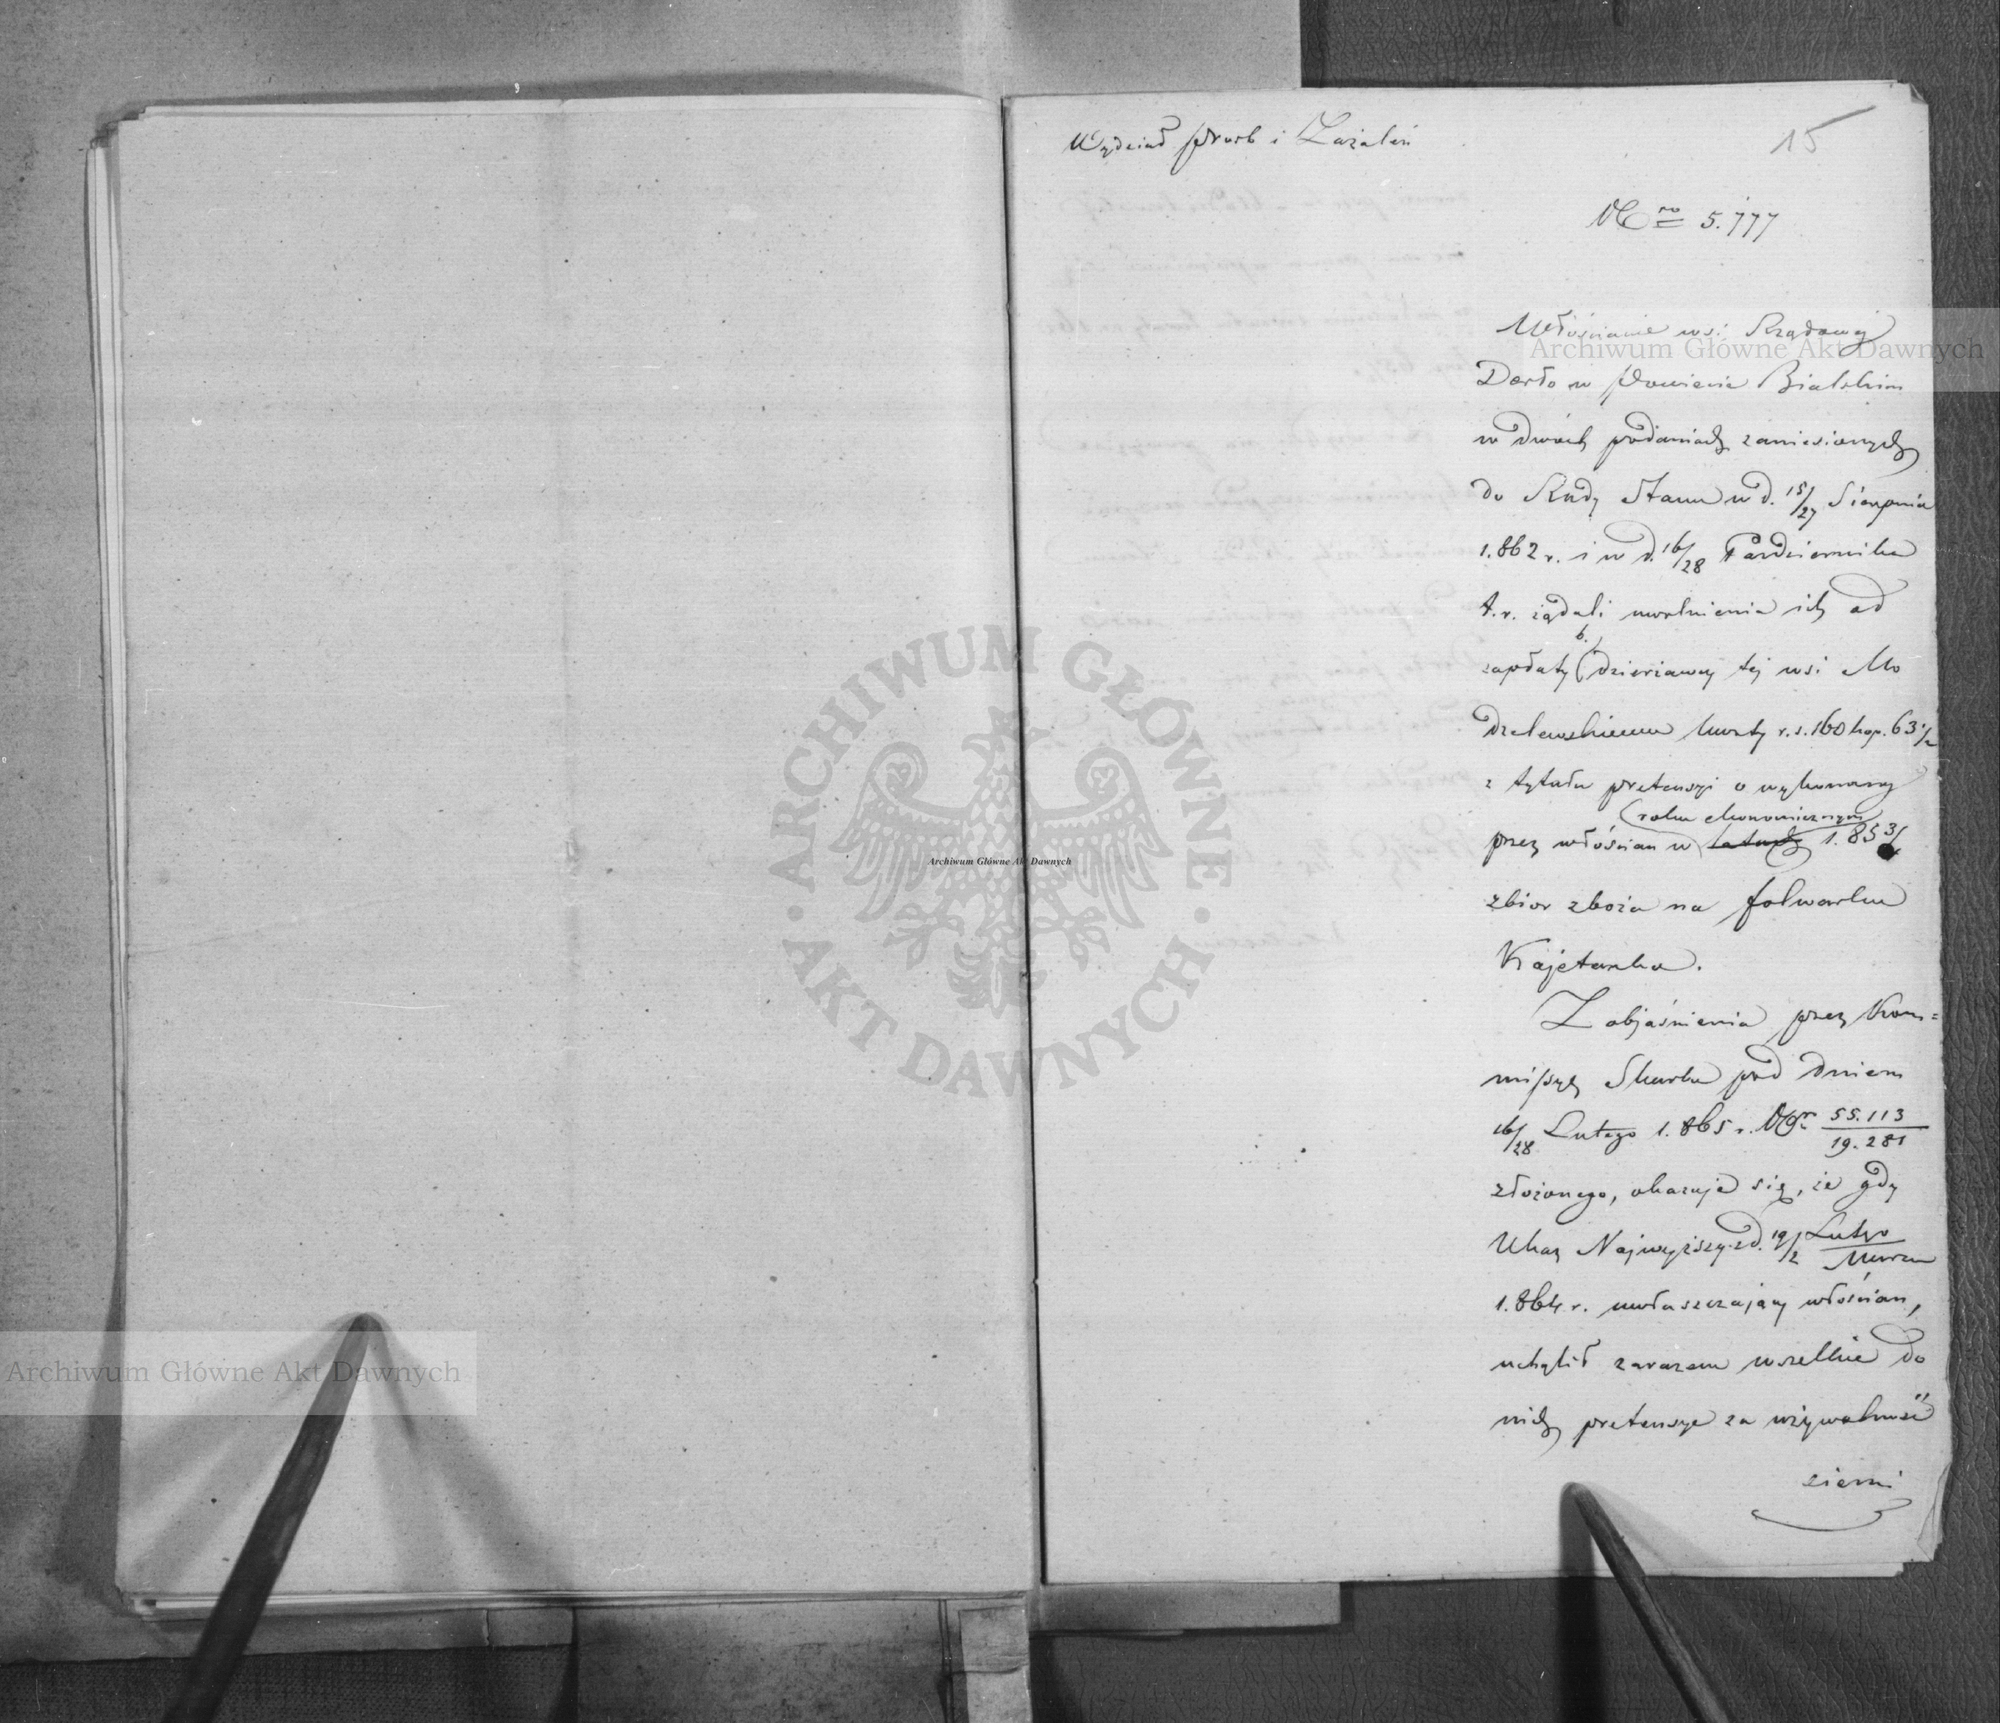 Wydział prośb i Zażaleń
15
Nro 5.777
Włościanie wsi Rządowej
Derło w Powiecie Bialskim
w dwóch podaniach zaniesionych
do Rady Stanu w d. 15/27 Sierpnia
1.862 r. i w d. 16/28 Października
t.r. żądali uwolnienia ich od
b.
zapłaty dzierżawcy tej wsi Mo
dzelewskiemu kwoty r.s. 160 kop. 63 1/2
z tytułu pretensyi o wykonany
roku ekonomicznym
przez włościan w latach 1.853/4
zbior zboża na folwarku
Kajetanka.
Z objaśnienia przez Kom=
missyę Skarbu pod dniem
16/28 Lutego 1.865 r. Nr 55.113/19.281
złożonego, okazuje się, że gdy
Ukaz Najwyższy z d. 19/2 Lutego/Marca
1.864 r. uwłaszczający włościan,
uchylił zarazem wszelkie do
nich pretensye za używalność
ziemi
Archiwum Główne Akt Dawnych
Archiwum Główne Akt Dawnych
Archiwum Główne Akt Dawnych
ARCHIWUM GŁÓWNE AKT DAWNYCH